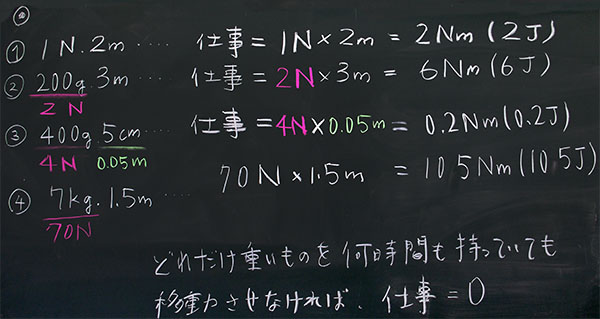 ① 1N. 2m ····· 仕事 = 1N × 2m = 2Nm (2J)
② 200g. 3m ···· 仕事 = 2N × 3m = 6Nm (6J)
2N
③ 400g. 5cm ···· 仕事 = 4N × 0.05m = 0.2Nm (0.2J)
4N 0.05m
④ 7kg. 1.5m ···· 70N × 1.5m = 10.5Nm (10.5J)
70N
どれだけ重いものを何時間も持っていても
移動させなければ、仕事 = 0